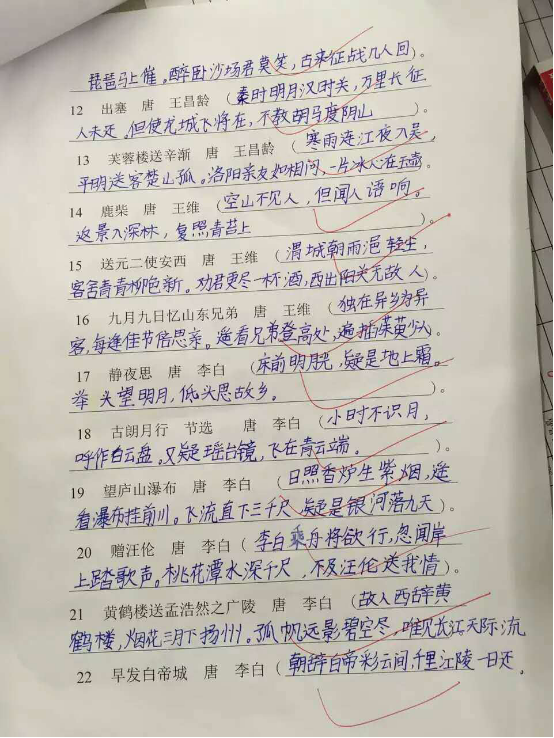 琵琶马上催。醉卧沙场君莫笑，古来征战几人回）。
12 出塞 唐 王昌龄（秦时明月汉时关，万里长征
人未还。但使龙城飞将在，不教胡马度阴山）。
13 芙蓉楼送辛渐 唐 王昌龄（寒雨连江夜入吴，
平明送客楚山孤。洛阳亲友如相问，一片冰心在玉壶。
14 鹿柴 唐 王维（空山不见人，但闻人语响。
返景入深林，复照青苔上）。
15 送元二使安西 唐 王维（渭城朝雨浥轻尘，
客舍青青柳色新。劝君更尽一杯酒，西出阳关无故人）。
16 九月九日忆山东兄弟 唐 王维（独在异乡为异
客，每逢佳节倍思亲。遥看兄弟登高处，遍插茱萸少人）。
17 静夜思 唐 李白（床前明月光，疑是地上霜。
举头望明月，低头思故乡。）。
18 古朗月行 节选 唐 李白（小时不识月，
呼作白云盘。又疑瑶台镜，飞在青云端。）。
19 望庐山瀑布 唐 李白（日照香炉生紫烟，遥
看瀑布挂前川。飞流直下三千尺，疑是银河落九天）。
20 赠汪伦 唐 李白（李白乘舟将欲行，忽闻岸
上踏歌声。桃花潭水深千尺，不及汪伦送我情）。
21 黄鹤楼送孟浩然之广陵 唐 李白（故人西辞黄
鹤楼，烟花三月下扬州。孤帆远影碧空尽，唯见长江天际流
22 早发白帝城 唐 李白（朝辞白帝彩云间，千里江陵一日还，